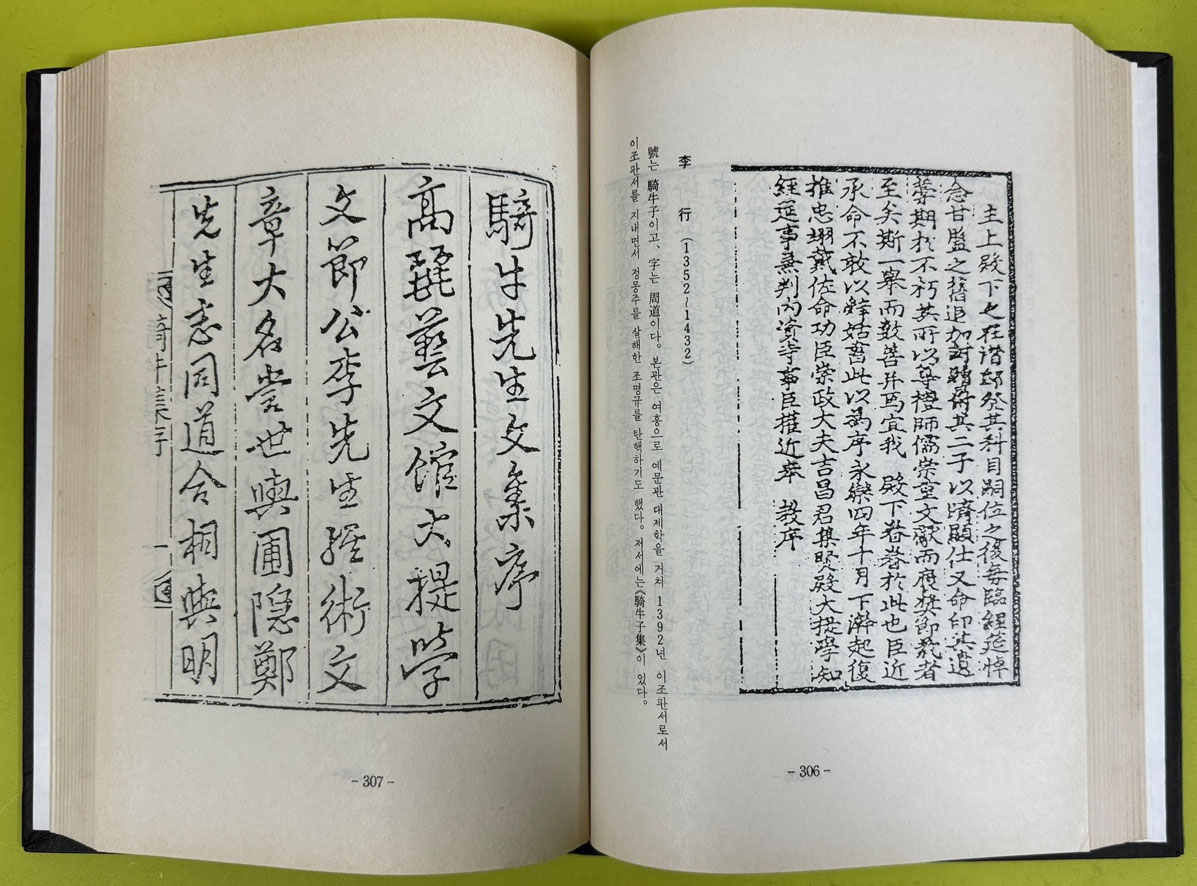 主上殿下之在潛邸登其科目嗣位之後每臨經筵悼
念甘盤之舊追加封贈將其二子以濟顯仕又命印其遺
藁期於不朽其所以尊禮師儒崇重文獻而廣獎節義者
至矣斯一擧而數善幷焉宜我 殿下眷眷於此也臣近
承命不敢以辭姑書此以爲序永樂四年十月下澣起復
推忠翊戴佐命功臣崇政大夫吉昌君集賢殿大提學知
經筵事兼判內資寺事臣權近奉 敎序
李 行 (1352~1432)
號는 騎牛子이고, 字는 周道이다. 본관은 여흥으로 예문관 대제학을 거쳐 1392년 이조판서로서
이조판서를 지내면서 정몽주를 살해한 조영규를 탄핵하기도 했다. 저서에는《騎牛子集》이 있다.
- 306 -
騎牛先生文集序
高麗藝文館大提學
文節公李先生經術文
章大名當世與圃隱鄭
先生志同道合相與明
騎牛集序
一
- 307 -